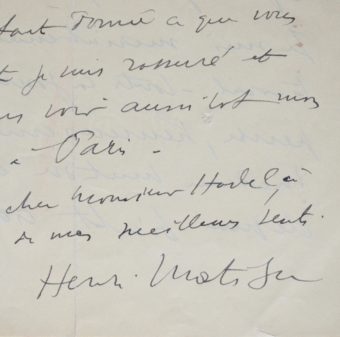 tout donné à ce que vous
je suis rassuré et
vous voir aussitôt mon
à Paris -
cher Monsieur Hodel, à
de mes meilleurs senti
Henri Matisse